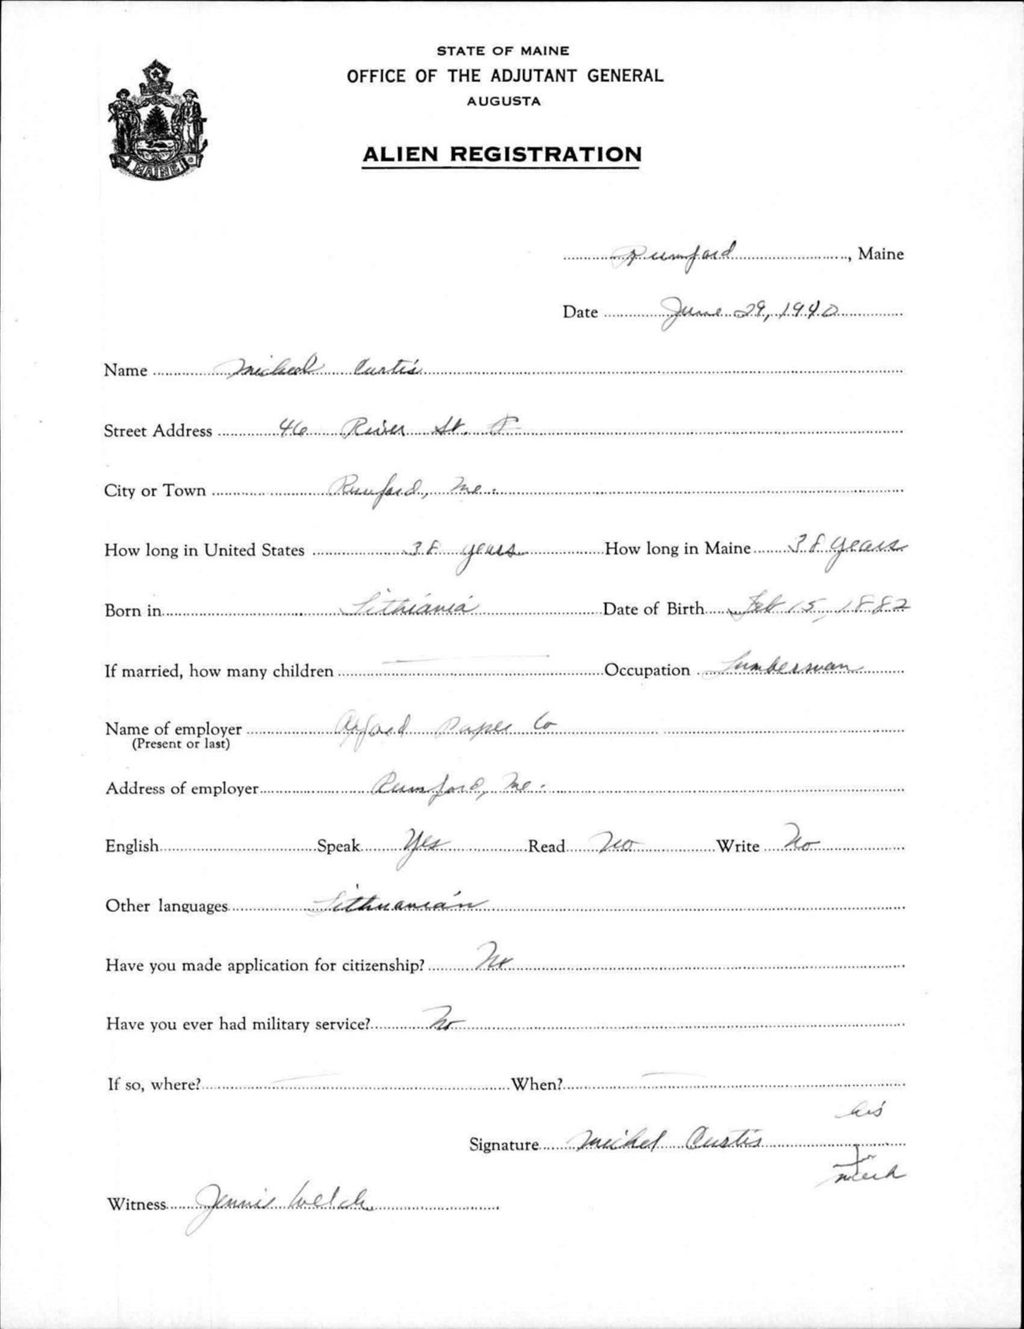 STATE OF MAINE
OFFICE OF THE ADJUTANT GENERAL
AUGUSTA
ALIEN REGISTRATION
MAINE
Rumford, Maine
Date June 29, 1940
Name Micheal Curtis
Street Address 46 River St.
City or Town Rumford, Me.
How long in United States 38 years How long in Maine 38 years
Born in Lithiania Date of Birth Feb 15, 1882
If married, how many children — Occupation Lumberman
Name of employer Oxford Paper Co
(Present or last)
Address of employer Rumford, Me.
English Speak Yes Read No Write No
Other languages Lithuanian
Have you made application for citizenship? No
Have you ever had military service? No
If so, where? — When? —
his
Signature Michel Curtis
mark
Witness Jennie Welch